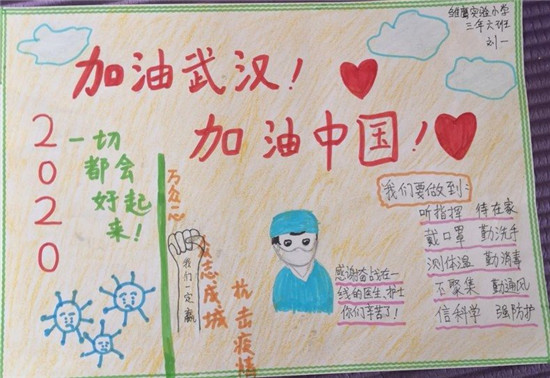 雏鹰实验小学
三年六班
刘一
加油武汉！
加油中国！
2020
一切
都会
好起
来！
万众一心
众志成城
抗击疫情
我们一定赢
感谢奋战在一
线的医生、护士
你们辛苦了！
我们要做到：
听指挥 侍在家
戴口罩 勤洗手
测体温 勤消毒
不聚集 勤通风
信科学 强防护